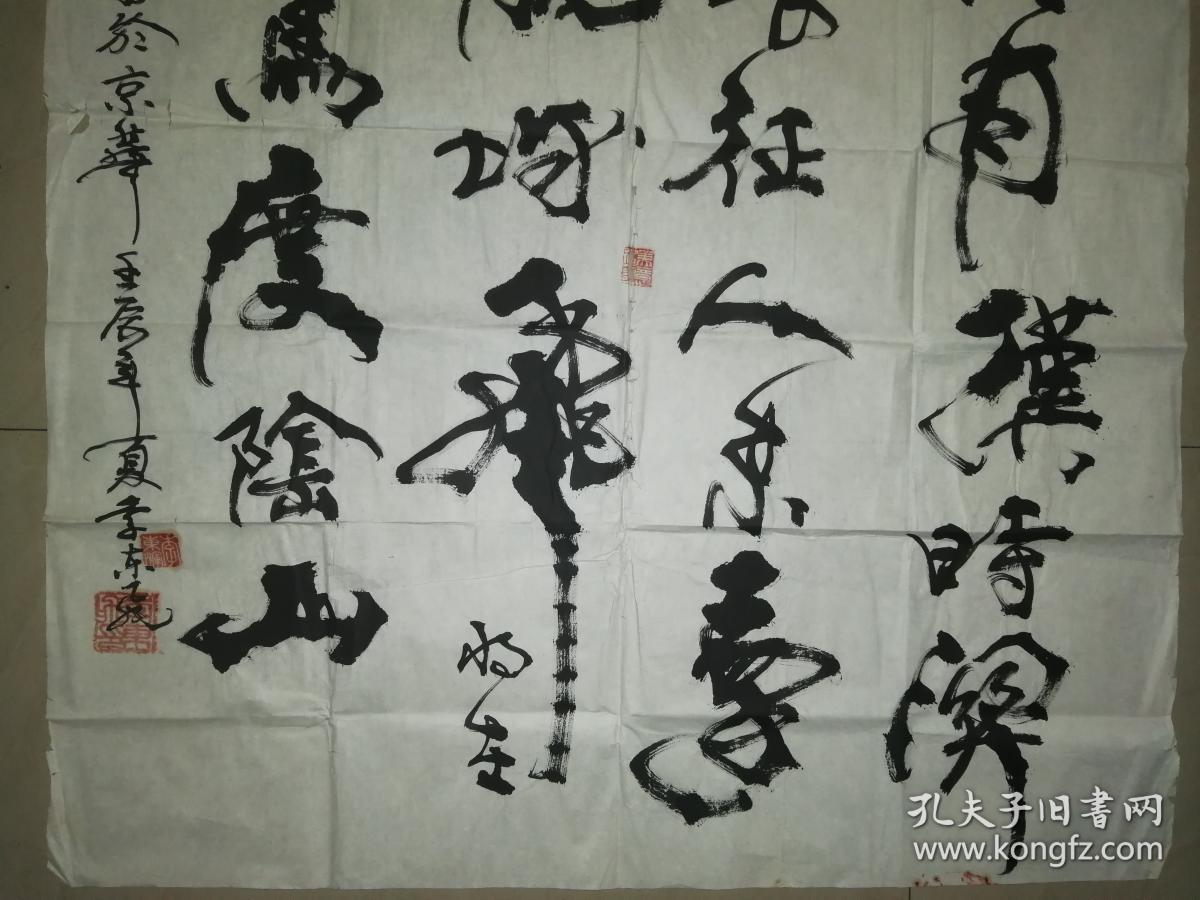 月漢時關
征人未還
城飛將在
馬度陰山
於京華壬辰年夏李东
孔夫子旧書网
www.kongfz.com